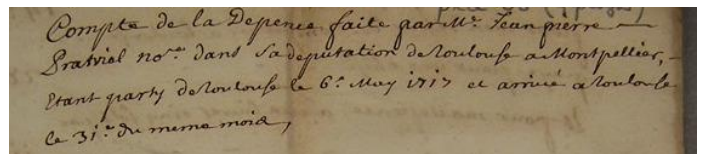 Compte de la Depence faite par Mr. Jean pierre
Pratviel nore. dans sa deputation de Toulouse a Montpellier,
Etant party de Toulouse le 6e. May 1717 et arrivé a Toulouse
le 31e. du meme mois,